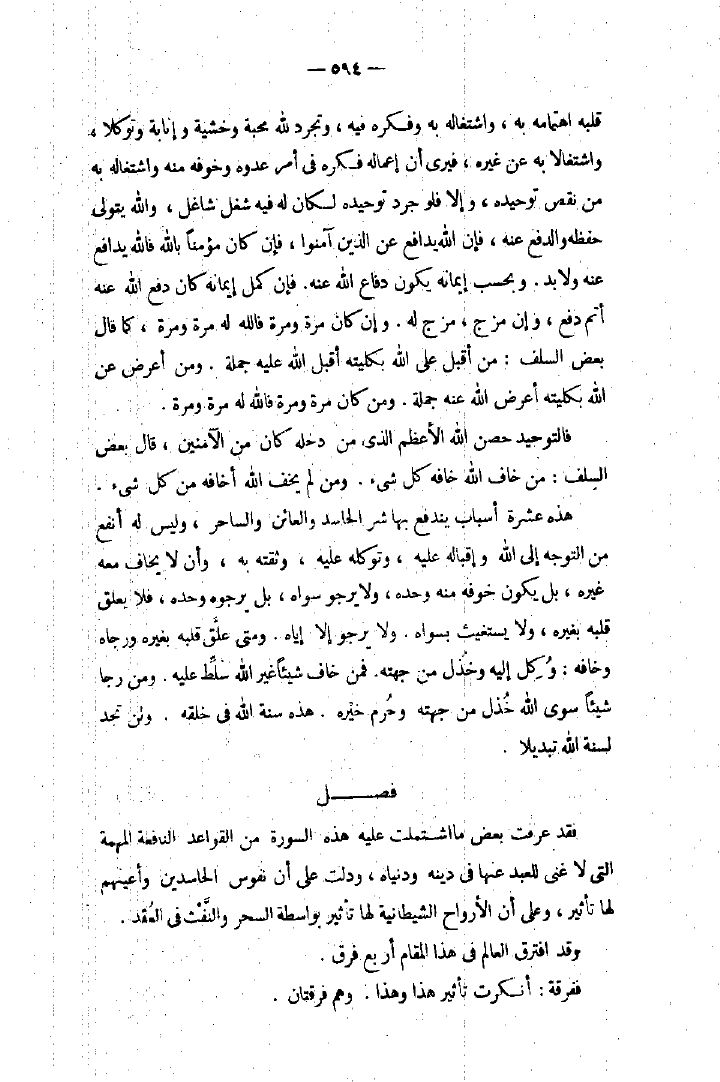 — ٥٩٤ —
قلبه اهتمامه به ، واشتغاله به وفكره فيه ، وتجرد لله محبة وخشية و إنابة وتوكلا ،
واشتغالا به عن غيره ، فيرى أن إعماله فكره فى أمر عدوه وخوفه منه واشتغاله به
من نقص توحيده ، و إلا فلو جرد توحيده لكان له فيه شغل شاغل ، والله يتولى
حفظه والدفع عنه ، فإن الله يدافع عن الذين آمنوا ، فإن كان مؤمناً بالله فالله يدافع
عنه ولابد . و بحسب إيمانه يكون دفاع الله عنه. فإن كمل إيمانه كان دفع الله عنه
أتم دفع ، و إن مزج ، مزج له . و إن كان مرة ومرة فالله له مرة ومرة ، كما قال
بعض السلف : من أقبل على الله بكليته أقبل الله عليه جملة . ومن أعرض عن
الله بكليته أعرض الله عنه جملة . ومن كان مرة ومرة فالله له مرة ومرة .
فالتوحيد حصن الله الأعظم الذى من دخله كان من الآمنين ، قال بعض
السلف : من خاف الله خافه كل شىء . ومن لم يخف الله أخافه من كل شىء .
هذه عشرة أسباب يندفع بها شر الحاسد والعائن والساحر ، وليس له أنفع
من التوجه إلى الله و إقباله عليه ، وتوكله عليه ، وثقته به ، وأن لا يخاف معه
غيره ، بل يكون خوفه منه وحده ، ولا يرجو سواه ، بل يرجوه وحده ، فلا يعلق
قلبه بغيره ، ولا يستغيث بسواه . ولا يرجو إلا إياه . ومتى علَّق قلبه بغيره ورجاه
وخافه : وُكِل إليه وخُذل من جهته. فمن خاف شيئاً غير الله سلِّط عليه . ومن رجا
شيئاً سوى الله خُذل من جهته وحُرم خيره . هذه سنة الله فى خلقه . ولن تجد
لسنة الله تبديلا .
فصــــل
فقد عرفت بعض ما اشتملت عليه هذه السورة من القواعد النافعة المهمة
التى لا غنى للعبد عنها فى دينه ودنياه ، ودلت على أن نفوس الحاسدين وأعينهم
لها تأثير ، وعلى أن الأرواح الشيطانية لها تأثير بواسطة السحر والنَّفْث فى العُقد .
وقد افترق العالم فى هذا المقام أر بع فرق .
ففرقة : أنكرت تأثير هذا وهذا . وهم فرقتان .